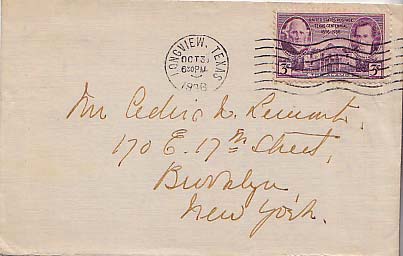 LONGVIEW, TEXAS
OCT 3
6 30 PM
1936
UNITED STATES POSTAGE
TEXAS CENTENNIAL
1836-1936
3¢ 3¢
Mr Cedric L.
170 E. 17th Street,
Brooklyn
New York.